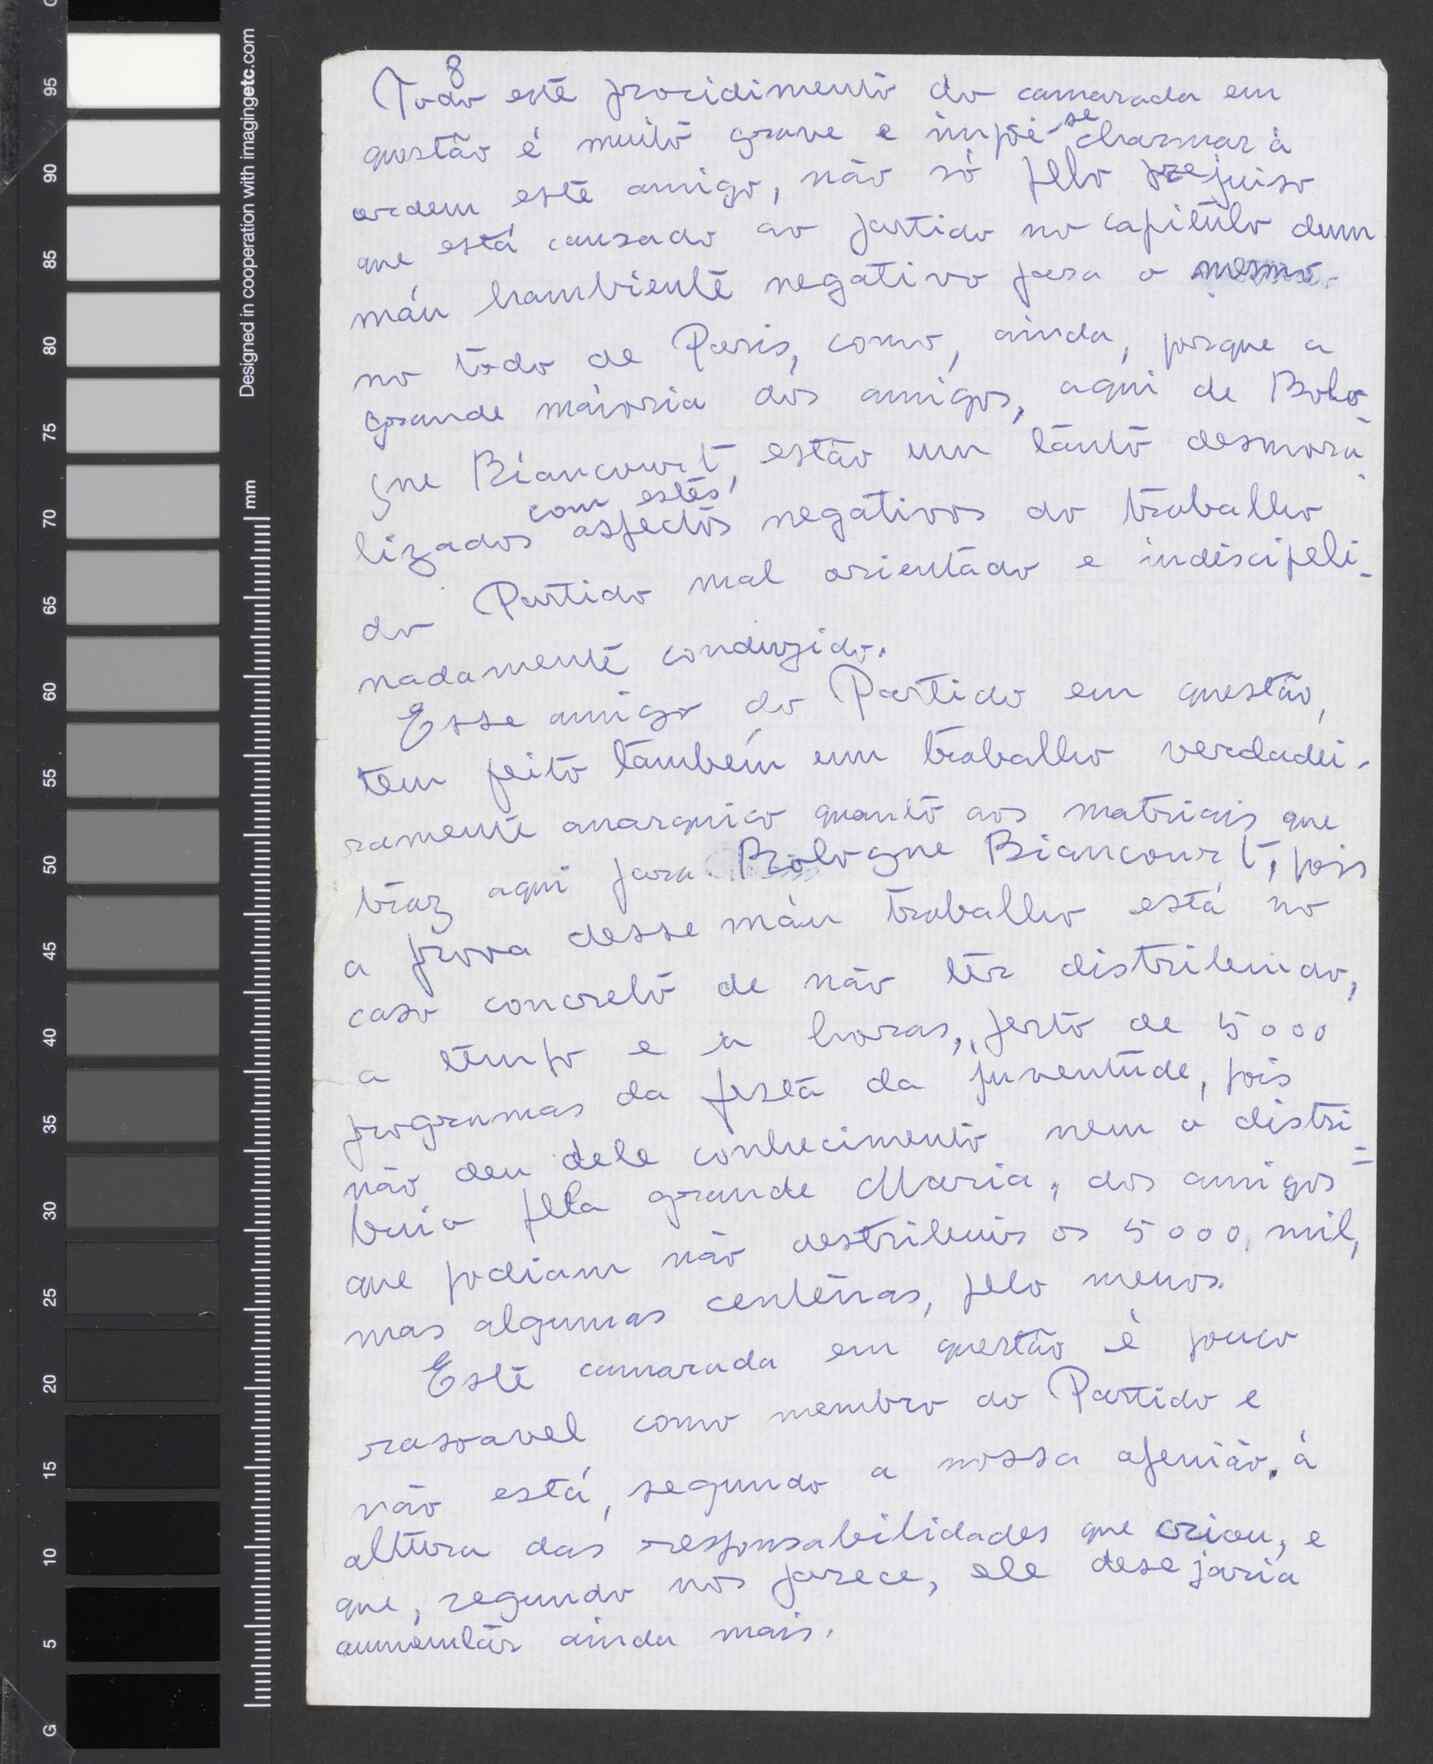 8
Todo este procidimento do camarada em
questão é muito grave e impõi-se charmar à
ordem este amigo, não só pelo prejuiso
que está causado ao partido no capitulo dum
máu hambiente negativo para o mesmo
no todo de Paris, como, ainda, porque a
grande maioria dos amigos, aqui de Bolo-
gne Biancourt, estão um tanto desmora-
lizados com estes aspectos negativos do trabalho
do Partido mal orientado e indiscipeli-
nadamente conduzido.
Esse amigo do Partido em questão,
tem feito também um trabalho verdadei-
ramente anarquico quanto aos matriais que
traz aqui para Bologne Biancourt, pois
a prova desse máu trabalho está no
caso concreto de não ter distribuido,
a tempo e a horas, perto de 5000
programas da festa da juventude, pois
não deu dele conhecimento nem o distri=
buio pela grande Maria, dos amigos
que podiam não destribuir os 5000, mil,
mas algumas centenas, pelo menos.
Este camarada em questão é pouco
rasoavel como membro do Partido e
não está, segundo a nossa openião, à
altura das responsabilidades que criou, e
que, segundo nos parece, ele desejaria
aumentar ainda mais.
Designed in cooperation with imagingetc.com
mm
95
90
85
80
75
70
65
60
55
50
45
40
35
30
25
20
15
10
5
G